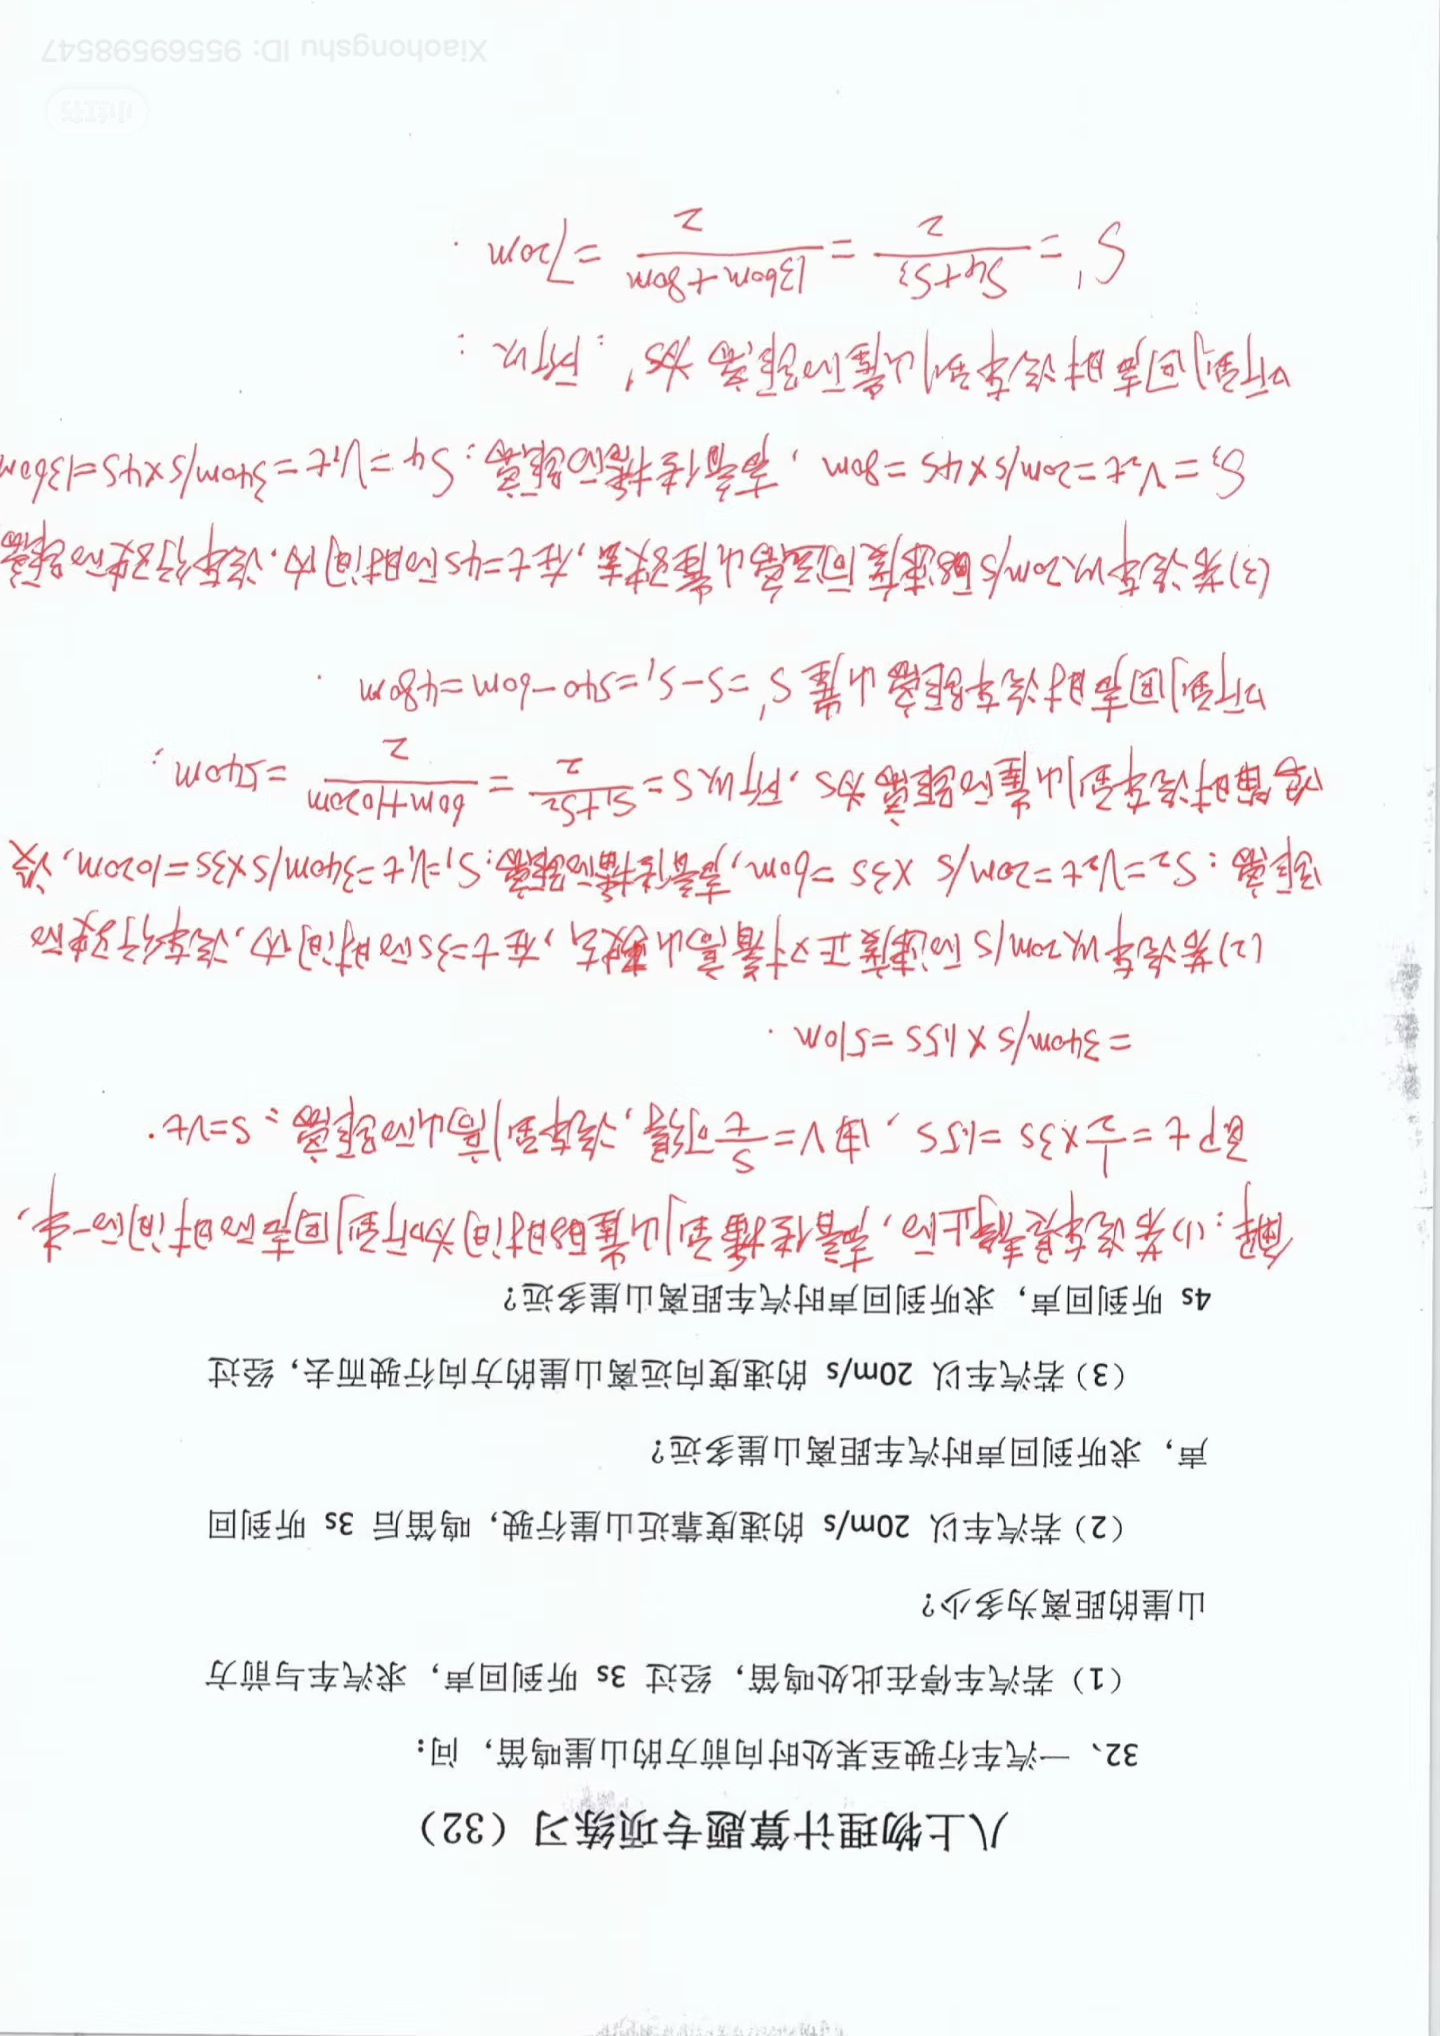 八上物理计算题专项练习（32）
32、一汽车行驶至某处时向前方的山崖鸣笛，问：
（1）若汽车停在此处鸣笛，经过 3s 听到回声，求汽车与前方
山崖的距离为多少？
（2）若汽车以 20m/s 的速度靠近山崖行驶，鸣笛后 3s 听到回
声，求听到回声时汽车距离山崖多远？
（3）若汽车以 20m/s 的速度向远离山崖的方向行驶而去，经过
4s 听到回声，求听到回声时汽车距离山崖多远？
解：(1)若汽车是静止的，声音传播到山崖的时间为听到回声的时间的一半，
即t=1/2×3s=1.5s，由V=S/t可得，汽车到高山的距离：S=Vt
=340m/s×1.5s=510m.
(2)若汽车以20m/s的速度正对着高山驶去，在t=3s的时间内，汽车行驶的
距离：S2=V2t=20m/s×3s=60m，声音传播的距离：S1=V1t=340m/s×3s=1020m，设
鸣笛时汽车到山崖的距离为S，所以S=(S1+S2)/2=(60m+1020m)/2=540m；
听到回声时汽车距离山崖S'=S-S1=540-60m=480m.
(3)若汽车以20m/s的速度向远离山崖驶去，在t=4s的时间内，汽车行驶的距离
S3=V2t=20m/s×4s=80m，声音传播的距离：S4=V1t=340m/s×4s=1360m
听到回声时汽车到山崖的距离为S'，所以：
S'=(S4+S3)/2=(1360m+80m)/2=720m.
小红书
Xiaohongshu ID: 95569598547